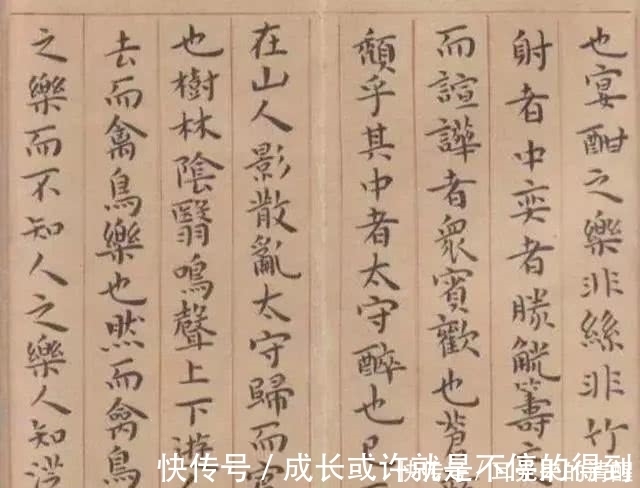 也宴酣之樂非絲非竹
射者中奕者勝觥籌
而諠譁者衆賓歡也蒼
頹乎其中者太守醉也已
在山人影散亂太守歸而賓
也樹林陰翳鳴聲上下遊人
去而禽鳥樂也然而禽鳥
之樂而不知人之樂人知從
快传号 / 成长或许就是不停的得到